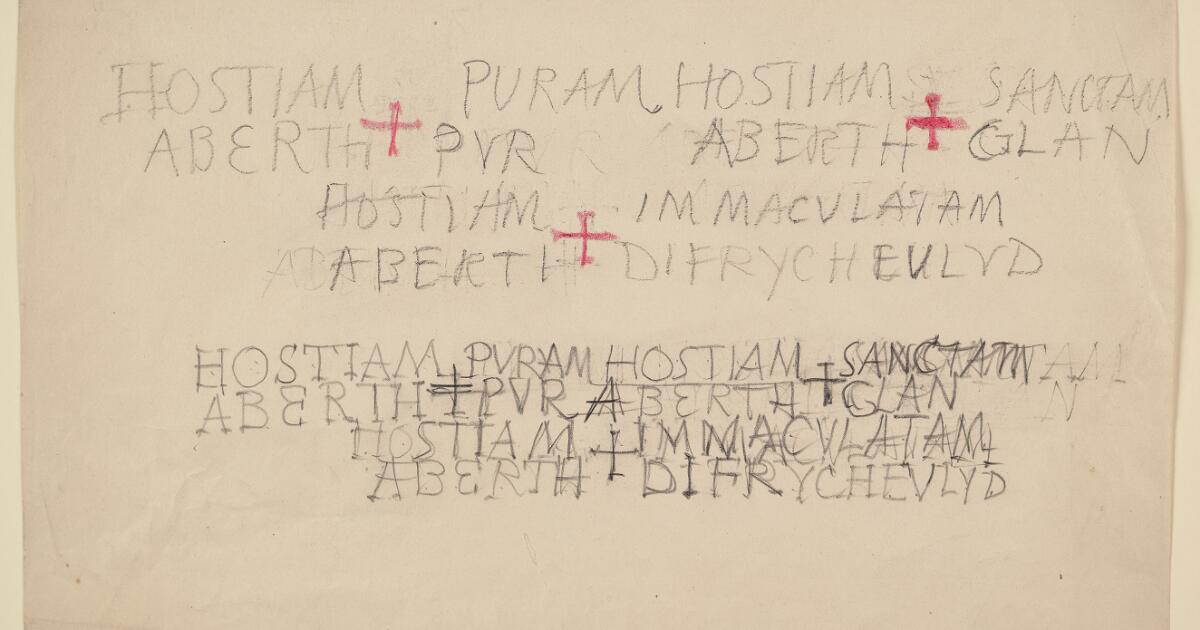 HOSTIAM + PURAM, HOSTIAM + SANCTAM
ABERTH + PVR ABERTH + GLAN
HOSTIAM + IMMACULATAM
ABERTH + DIFRYCHEULYD
HOSTIAM + PVRAM HOSTIAM + SANCTAM
ABERTH + PVR ABERTH + GLAN
HOSTIAM + IMMACVLATAM
ABERTH + DIFRYCHEVLYD